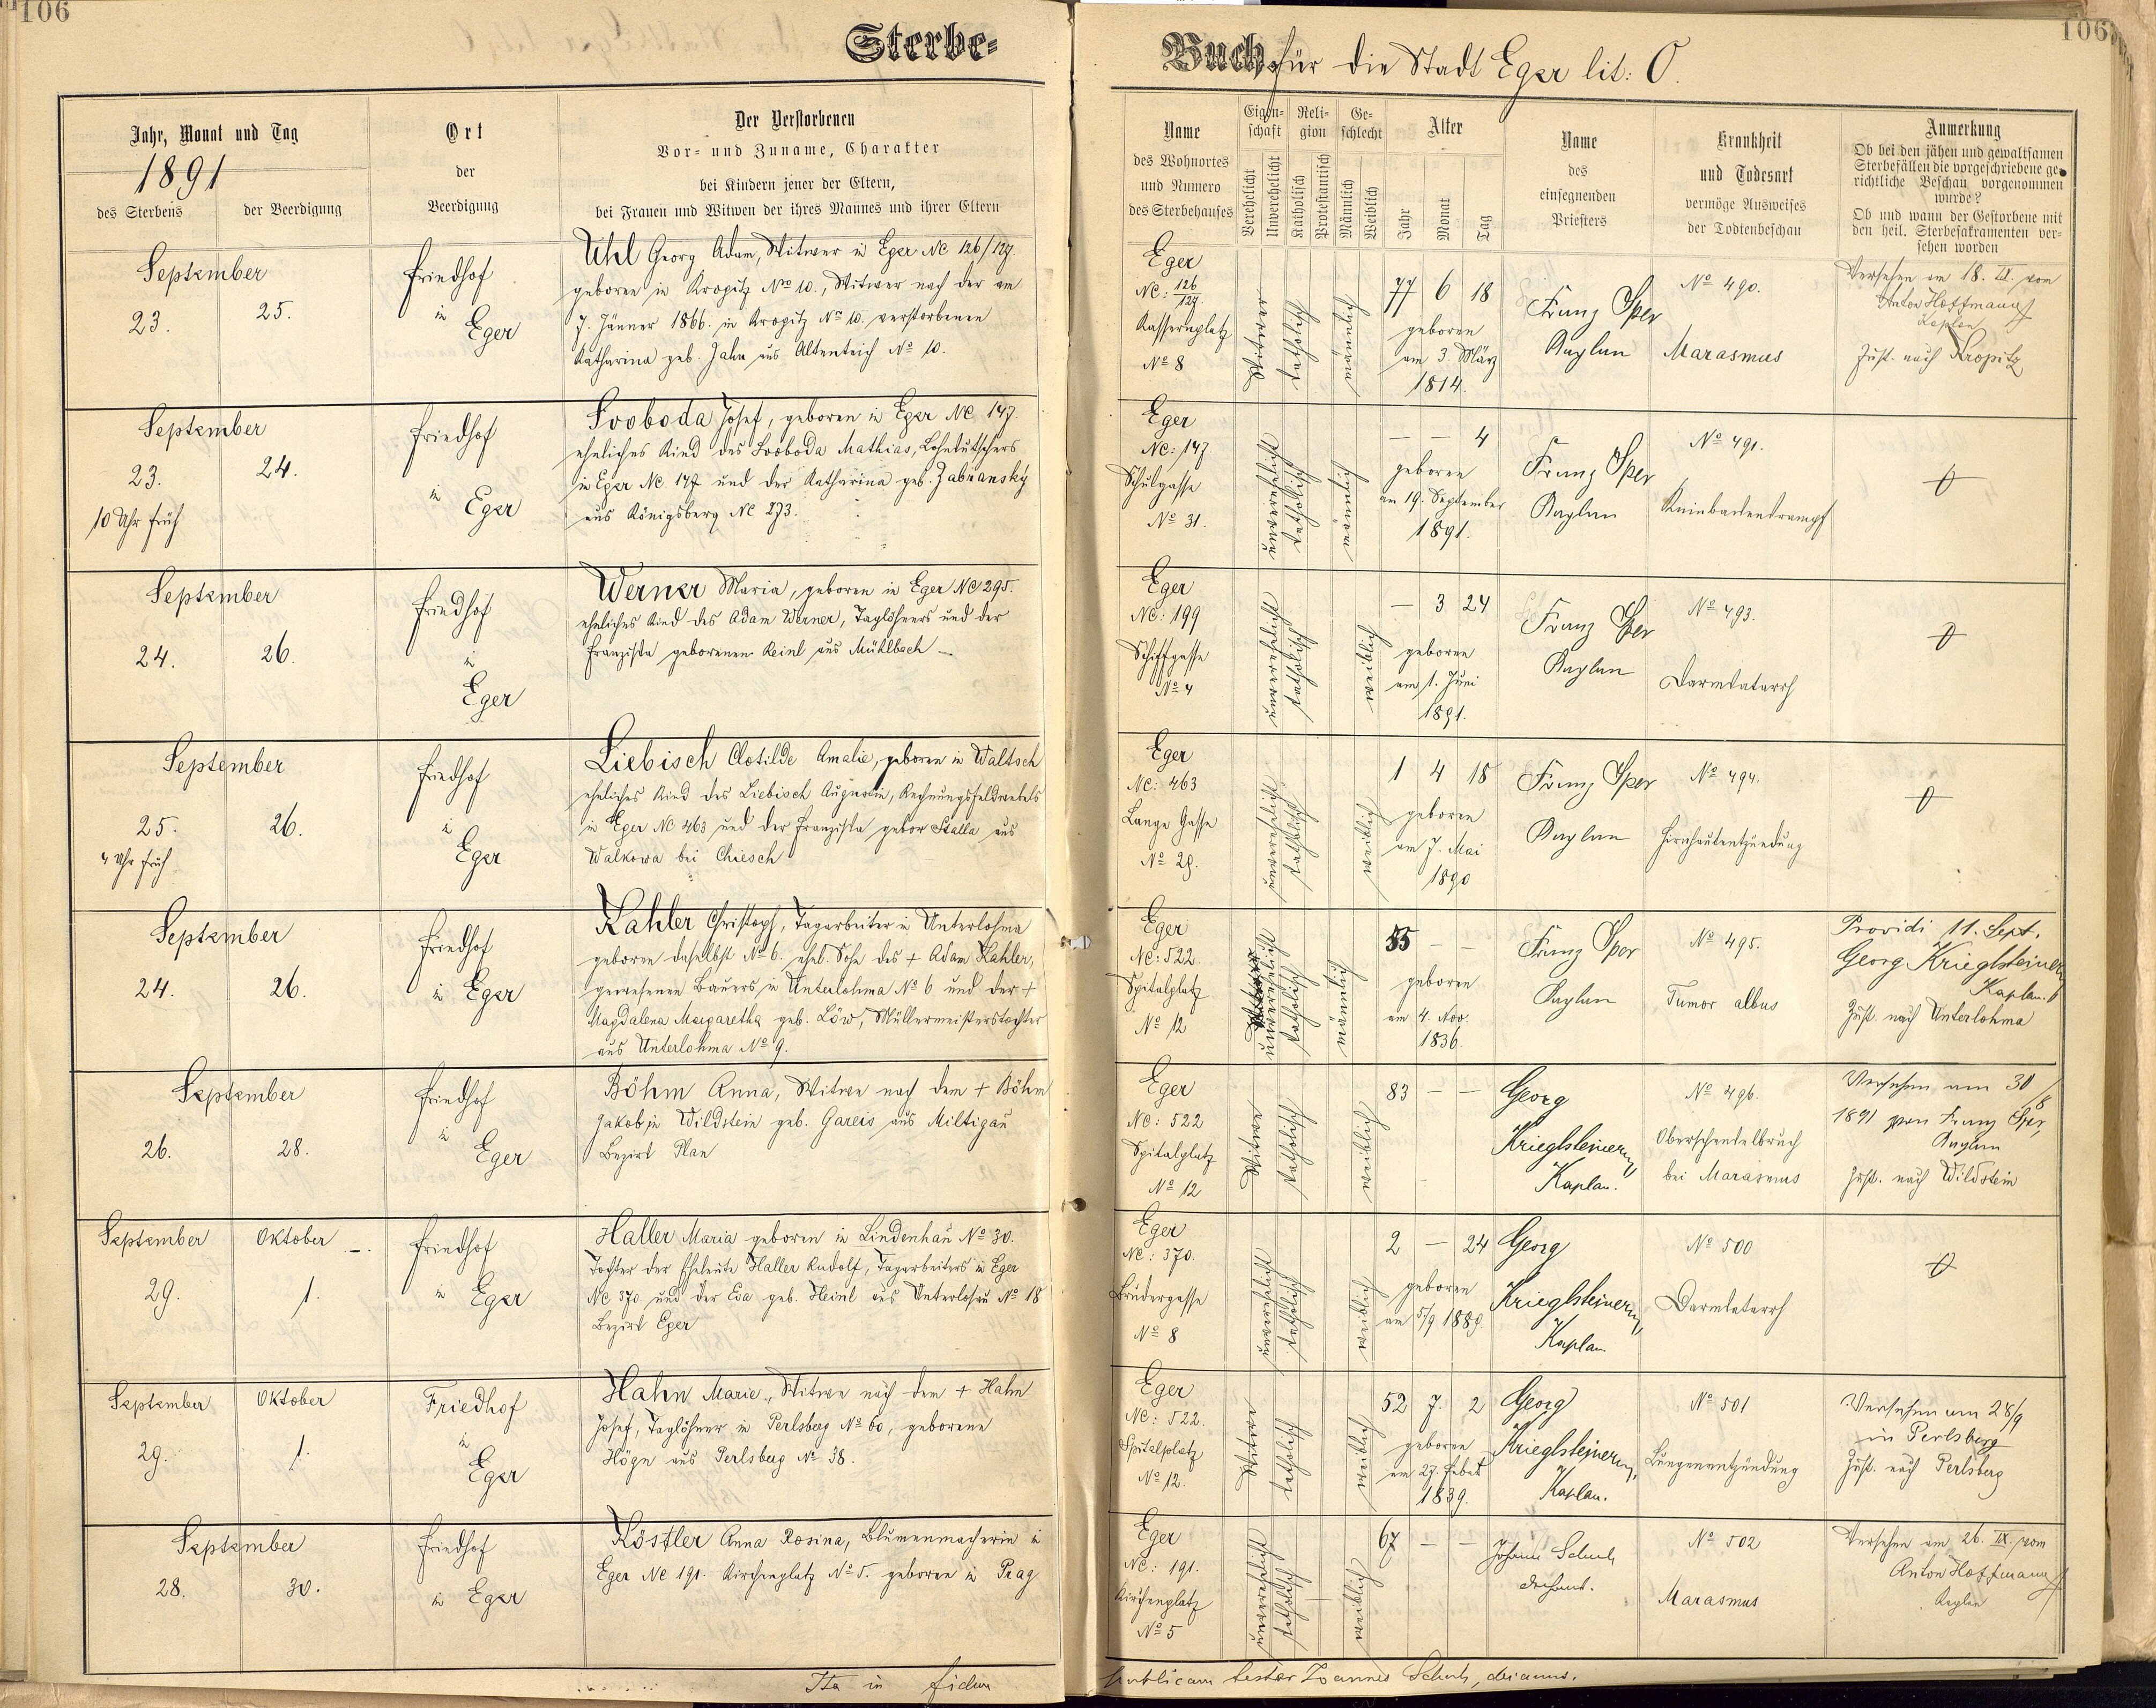 106
Sterbe-
Jahr, Monat und Tag
1891
des Sterbens
der Beerdigung
Ort
der
Beerdigung
Der Verstorbenen
Vor- und Zuname, Charakter
bei Kindern jener der Eltern,
bei Frauen und Witwen der ihres Mannes und ihrer Eltern
September
23.
25.
Friedhof
in
Eger
Uhl Georg Adam, Witwer in Eger NC 126/127.
geboren in Kropitz Nro 10., Witwer nach der am
7. Jänner 1866. in Kropitz No 10. verstorbenen
Katharina geb. Jahn aus Altenteich No 10.
September
23.
24.
10 Uhr früh
Friedhof
in
Eger
Svoboda Josef, geboren in Eger NC 147.
eheliches Kind des Svoboda Mathias, Lohnkutschers
in Eger NC 147 und der Katharina geb. Zabransky
aus Königsberg NC 273.
September
24.
26.
Friedhof
in
Eger
Werner Maria, geboren in Eger NC 295.
eheliches Kind des Adam Werner, Taglöhners und der
Franziska geborenen Keinl aus Mühlbach —
September
25.
26.
4 Uhr früh
Friedhof
in
Eger
Liebisch Clotilde Amalie, geboren in Waltsch
eheliches Kind des Liebisch Augustin, Rechnungsfeldwebels
in Eger NC 463 und der Franziska gebor Stalla aus
Walkowa bei Chiesch
September
24.
26.
Friedhof
in Eger
Kahler Christoph, Tagarbeiter in Unterlohma
geboren daselbst No 6. ehel. Sohn des + Adam Kahler,
gewesenen Bauers in Unterlohma No 6 und der +
Magdalena Margaretha geb. Löw, Müllermeisterstochter
aus Unterlohma No 9.
September
26.
28.
Friedhof
in
Eger
Böhm Anna, Witwe nach dem + Böhm
Jakob in Wildstein geb. Gareis aus Miltigau
Bezirk Plan
September
Oktober
29.
1.
Friedhof
in Eger
Haller Maria geboren in Lindenhau No 30.
Tochter der Eheleute Haller Rudolf, Tagarbeiters in Eger
NC 370 und der Eva geb. Heinl aus Unterlosau No 18
Bezirk Eger
September
Oktober
29.
1.
Friedhof
in
Eger
Hahn Marie, Witwe nach dem + Hahn
Josef, Taglöhner in Perlsberg No 60, geborene
Högn aus Perlsberg No 38.
September
28.
30.
Friedhof
in Eger
Köstler Anna Rosina, Blumenmacherin in
Eger NC 191. Kirchenplatz No 5. geboren in Prag
Ita in fidem
106
Buch für die Stadt Eger lit: O.
Name
des Wohnortes
und Numero
des Sterbehauses
Eigen-
schaft
Verehelicht
Unverehelicht
Reli-
gion
Katholisch
Protestantisch
Ge-
schlecht
Männlich
Weiblich
Alter
Jahr
Monat
Tag
Name
des
einsegnenden
Priesters
Krankheit
und Todesart
vermöge Ausweises
der Todtenbeschau
Anmerkung
Ob bei den jähen und gewaltsamen
Sterbefällen die vorgeschriebene ge-
richtliche Beschau vorgenommen
wurde?
Ob und wann der Gestorbene mit
den heil. Sterbesakramenten ver-
sehen worden
Eger
NC: 126/127.
Kassernplatz
No 8
Witwer
katholisch
männlich
77 6 18
geboren
am 3. März
1814.
Franz Sper
Kaplan
No 490.
Marasmus
Versehen am 18. IX. vom
Anton Hoffmann
Kaplan
Zust. nach Kropitz
Eger
NC: 147.
Schulgasse
No 31.
unverehelicht
katholisch
männlich
— — 4
geboren
am 19. September
1891.
Franz Sper
Kaplan
No 491.
Kinnbackenkrampf
Eger
NC: 199
Schiffgasse
No 4
unverehelicht
katholisch
weiblich
— 3 24
geboren
am 1. Juni
1891.
Franz Sper
Kaplan
No 493.
Darmkatarrh
Eger
NC: 463
Lange Gasse
No 29.
unverehelicht
katholisch
weiblich
1 4 18
geboren
am 7. Mai
1890
Franz Sper
Kaplan
No 494.
Hirnhautentzündung
Eger
NC: 522.
Spitalplatz
No 12
unverehelicht
katholisch
männlich
55 — —
geboren
am 4. Nov.
1836.
Franz Sper
Kaplan
No 495.
Tumor albus
Providi 11. Sept.
Georg Krieglsteiner
Kaplan.
Zust. nach Unterlohma
Eger
NC: 522
Spitalplatz
No 12
Witwe
katholisch
weiblich
83 — —
Georg
Krieglsteiner,
Kaplan.
No 496.
Oberschenkelbruch
bei Marasmus
Versehen am 30/8
1891 von Franz Sper,
Kaplan
Zust. nach Wildstein
Eger
NC: 370.
Brudergasse
No 8
unverehelicht
katholisch
weiblich
2 — 24
geboren
am 5/9 1889.
Georg
Krieglsteiner,
Kaplan.
No 500
Darmkatarrh
Eger
NC: 522.
Spitalplatz
No 12.
Witwe
katholisch
weiblich
52 7. 2
geboren
am 27. Feber
1839.
Georg
Krieglsteiner,
Kaplan.
No 501
Lungenentzündung
Versehen am 28/9
in Perlsberg
Zust. nach Perlsberg
Eger
NC: 191.
Kirchenplatz
No 5
unverehelicht
katholisch
weiblich
67 — —
Johann Schuh
Dechant.
No 502
Marasmus
Versehen am 26. IX. vom
Anton Hoffmann
Kaplan
publicam testor Joannes Schuh, decanus.